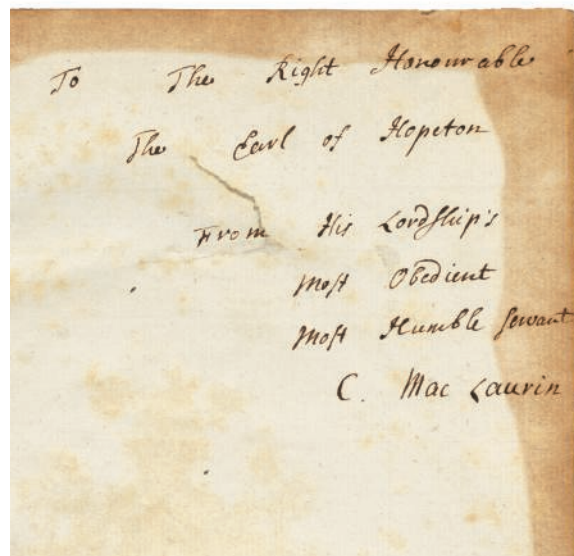 To The Right Honourable
The Earl of Hopeton
From His Lordship's
Most Obedient
Most Humble Servant
C. Mac Laurin